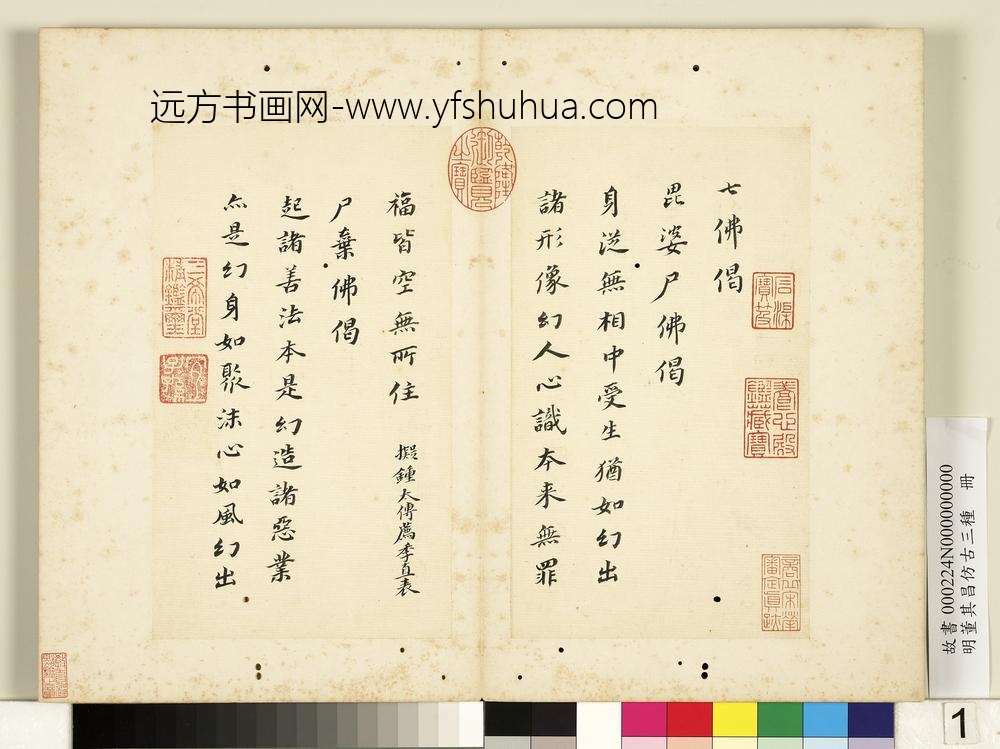 远方书画网-www.yfshuhua.com
七佛偈
毘婆尸佛偈
身從無相中受生猶如幻出
諸形像幻人心識本来無罪
福皆空無所住 擬鍾太傅薦季直表
尸棄佛偈
起諸善法本是幻造諸惡業
亦是幻身如聚沫心如風幻出
乾隆御覽之寶
石渠寶笈
養心殿鑑藏寶
三希堂精鑑璽
宜子孫
故書 000224N000000000
明董其昌仿古三種 冊
1